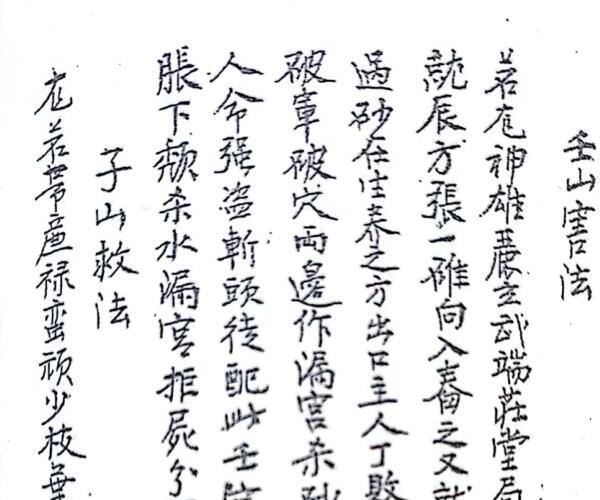 壬山害法
若龙神雄丽立武端莊堂局
就辰方張一碓向入舂之又就
過砂在生养之方出口主人丁敗
破軍破穴两邊作漏宫杀砂
人命强盗斬頭徒配此壬
脹下颓杀水漏宫拒屍分
子山救法
龙若带鹿禄蛮顽少枝葉